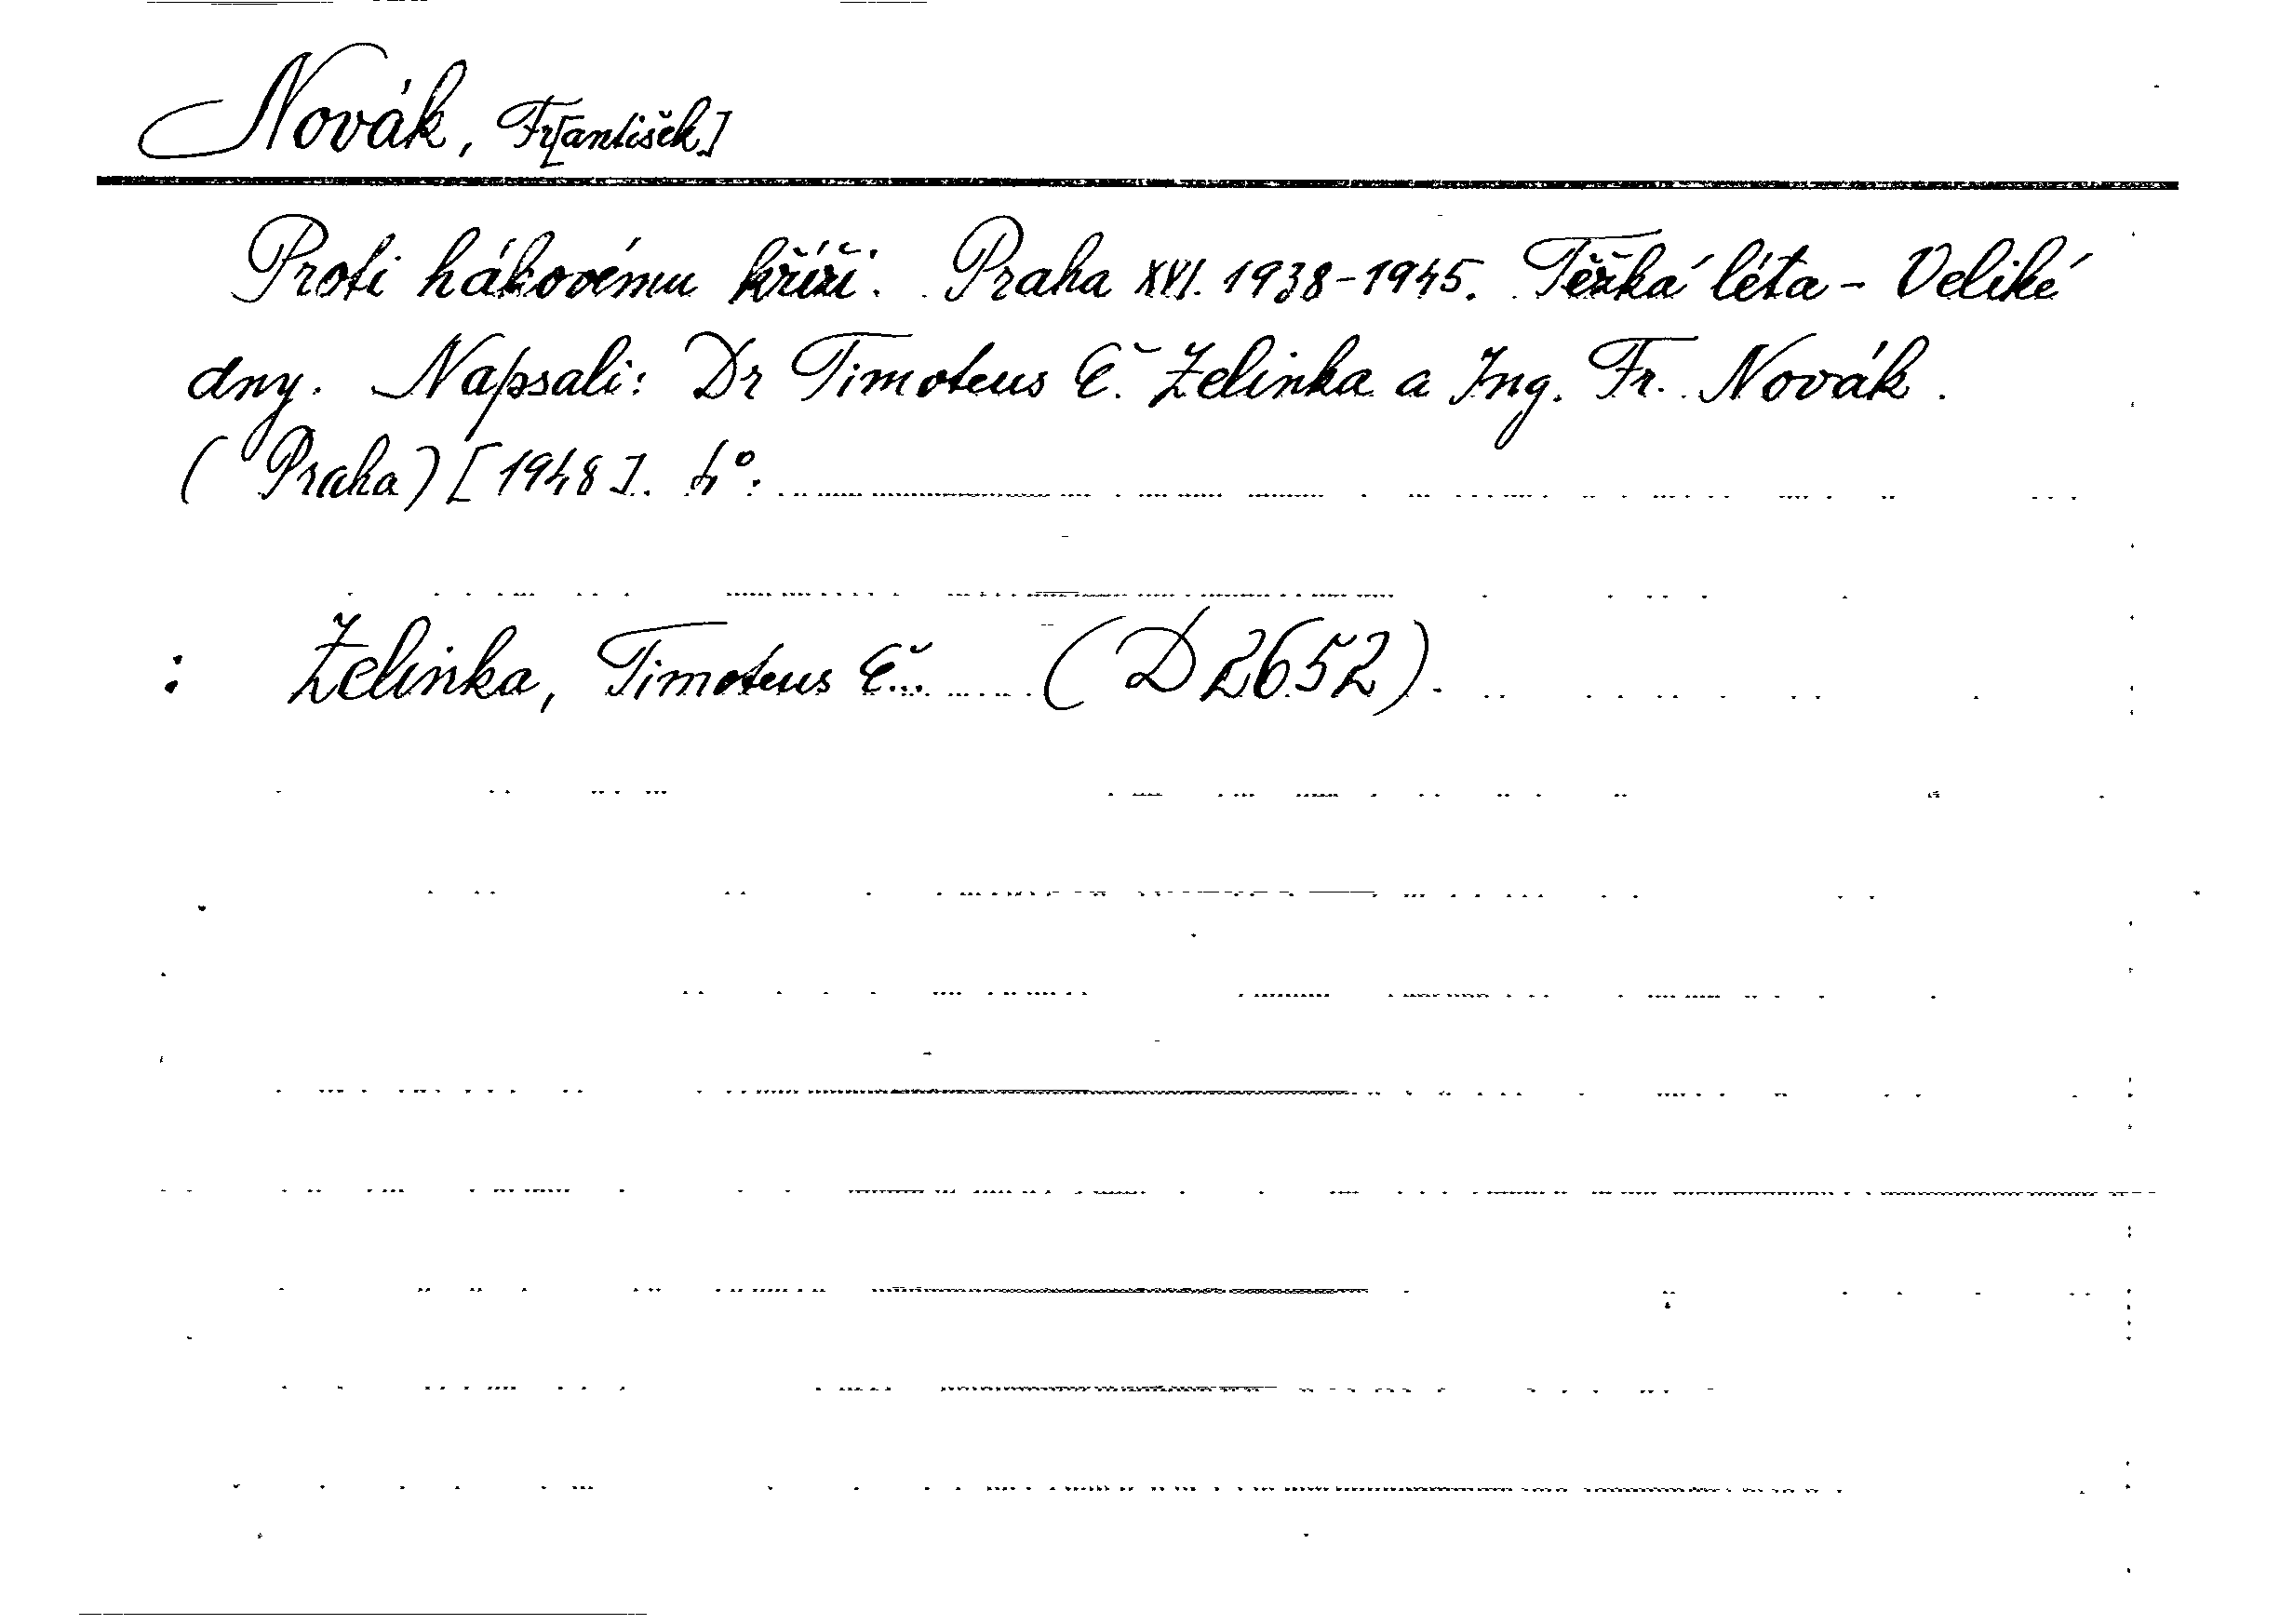 Novák, Fr[antišek]
Proti hákovému kříži. Praha XVI. 1938-1945. Těžká léta - Veliké
dny. Napsali: Dr Timoteus Č. Zelinka a Ing. Fr. Novák.
(Praha) [1948]. 4°.
: Zelinka, Timoteus Č... (D 2652).